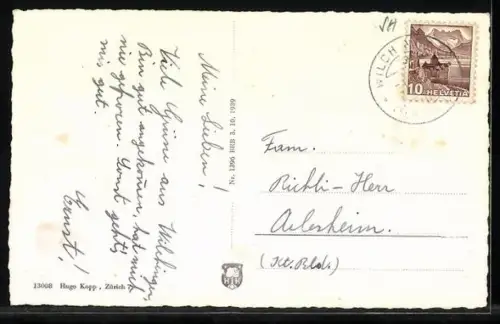 Meine Lieben!
Viele Grüsse aus Wilchingen
Bin gut angekommen, hat mich
nie gefroren. Sonst geht's
mir gut.
Ernst!
Nr. 1296 BRB 3. 10. 1939
13008 Hugo Kopp, Zürich 7
SH
WILCH
10 HELVETIA
Fam.
Richli-Herr
Arlesheim.
(Kt. Blds)